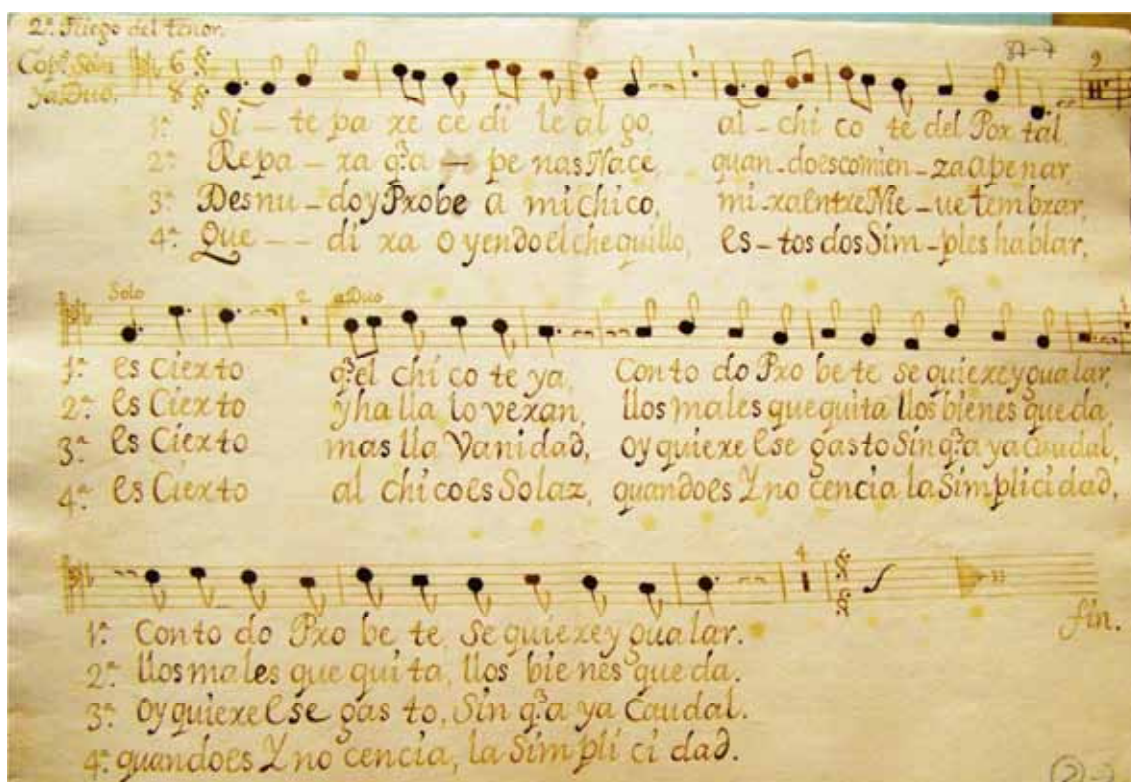 2º. Pliego del tenor.
37-7
Copˢ. Solo
ya Duo.
6
8
9
1ª. Si - te pa re ce di le al go, al - chi co te del Por tal
2ª. Repa - ra q.ᵉ a - pe nas Nace, quan - do es comien - za a penar,
3ª. Desnu - do y Probe a mi chico, mi - ra entre Nie - ue tembrar,
4ª. Que - - di ra oyendo el chequillo, es - tos dos Sim - ples hablar,
Solo 2 a Duo
1ª. es Cierto q.ᵉ el chi co te ya, Con to do Pro be te se quiere y gualar,
2ª. es Cierto y halla lo veran, llos males que quita llos bienes que da
3ª. es Cierto mas lla Vanidad, oy quiere Ese gasto Sin q.ᵉ a ya Caudal,
4ª. es Cierto al chico es Solaz, quando es Y no cencia la Simplicidad,
4
1ª. Con to do Pro be te se quiere y gualar.
fin.
2ª. llos males que qui ta, llos bie nes que da.
3ª. oy quiere Ese gas to, Sin q.ᵉ a ya Caudal.
4ª. quando es Y no cencia, la Simpli ci dad.